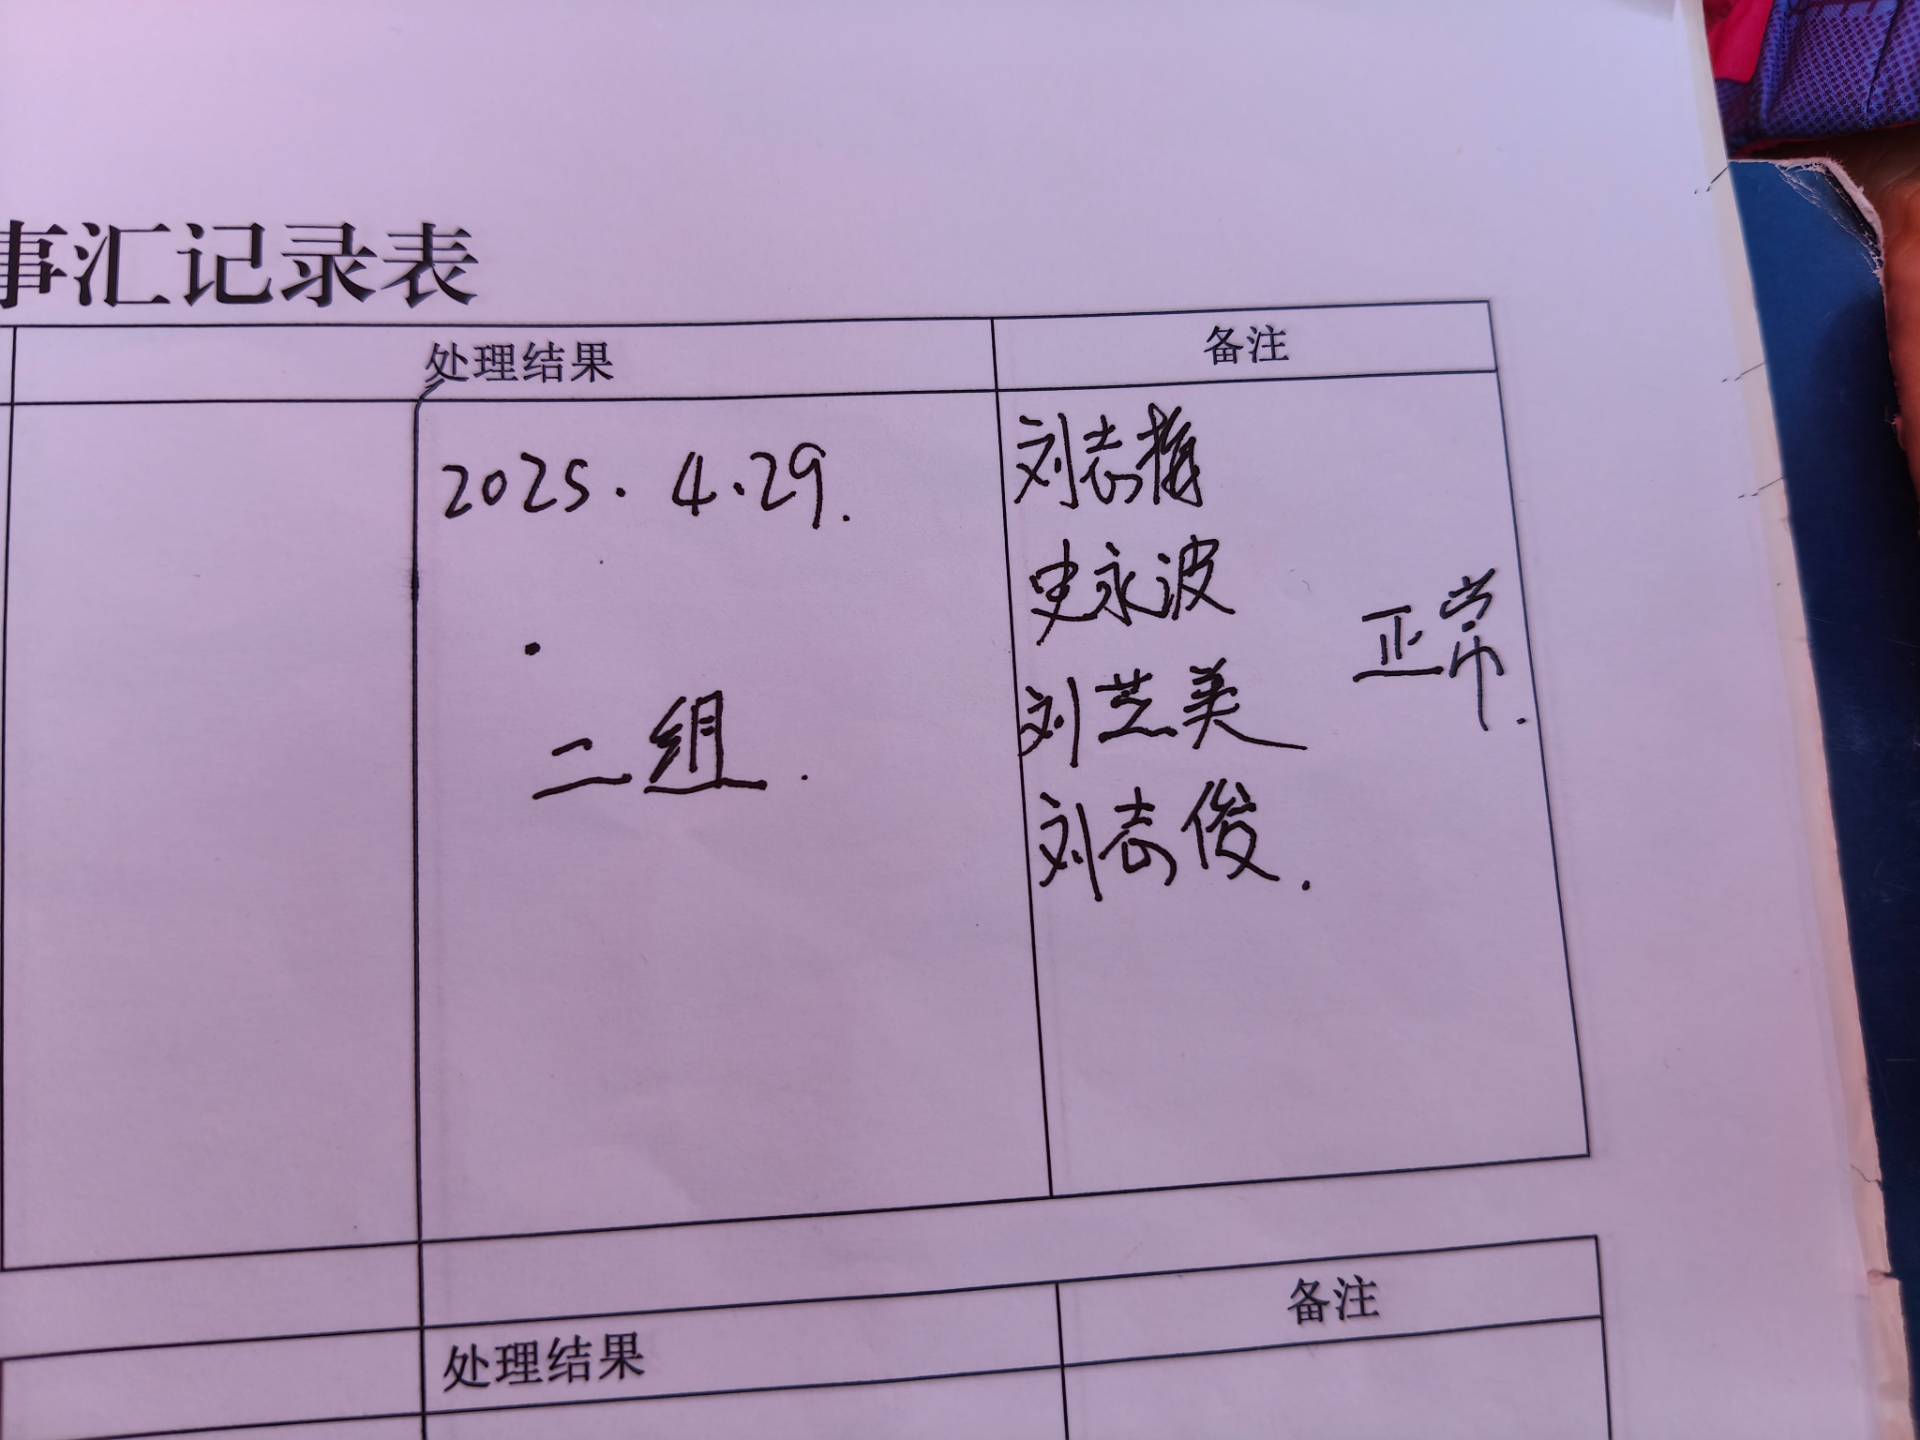 事汇记录表
处理结果 备注
2025.4.29.
二组.
刘志梅
史永波
刘芝美
刘志俊.
正常.
处理结果 备注